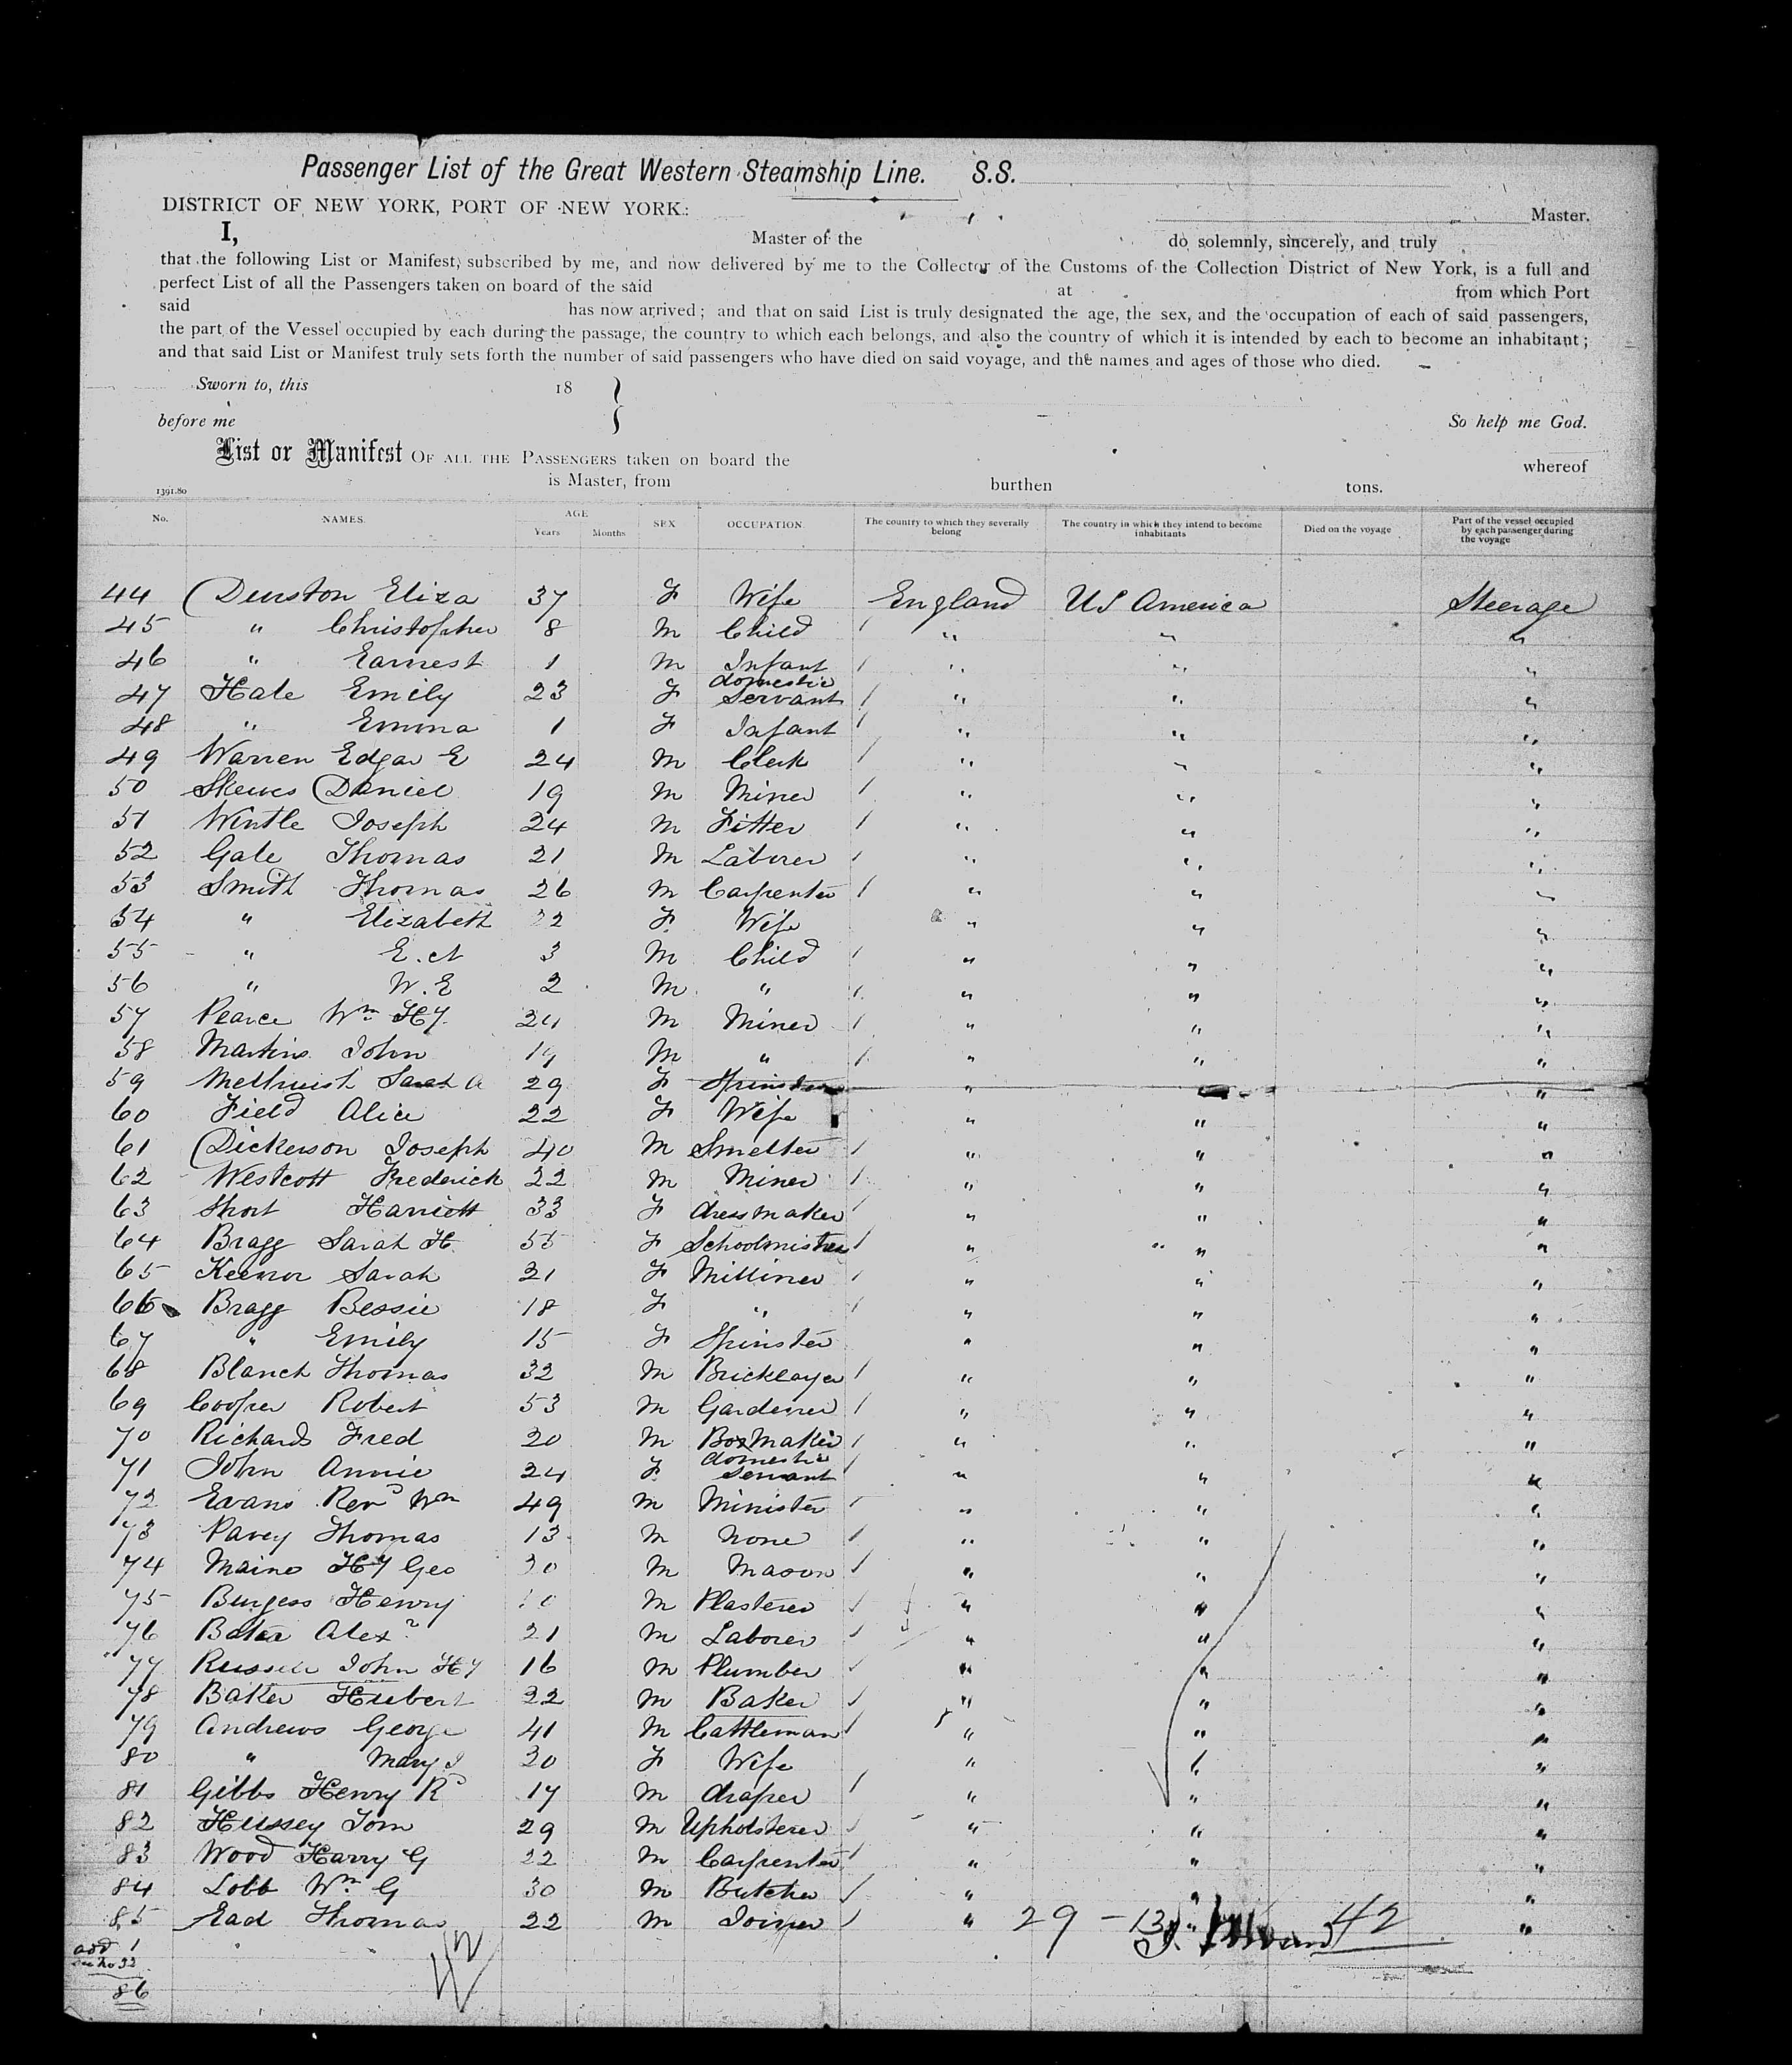 Passenger List of the Great Western Steamship Line. S.S.
DISTRICT OF NEW YORK, PORT OF NEW YORK: Master.
I, Master of the do solemnly, sincerely, and truly
that the following List or Manifest, subscribed by me, and now delivered by me to the Collector of the Customs of the Collection District of New York, is a full and
perfect List of all the Passengers taken on board of the said at from which Port
said has now arrived; and that on said List is truly designated the age, the sex, and the occupation of each of said passengers,
the part of the Vessel occupied by each during the passage, the country to which each belongs, and also the country of which it is intended by each to become an inhabitant;
and that said List or Manifest truly sets forth the number of said passengers who have died on said voyage, and the names and ages of those who died.
Sworn to, this 18
before me So help me God.
List or Manifest OF ALL THE PASSENGERS taken on board the whereof
is Master, from burthen tons.
1391.80
No. NAMES. AGE Years Months SEX OCCUPATION. The country to which they severally belong The country in which they intend to become inhabitants Died on the voyage Part of the vessel occupied by each passenger during the voyage
44 Durston Eliza 37 F Wife England US America Steerage
45 " Christopher 8 M Child " " "
46 " Earnest 1 M Infant " " "
47 Hale Emily 23 F domestic Servant " " "
48 " Emma 1 F Infant " " "
49 Warren Edgar E 24 M Clerk " " "
50 Skewes Daniel 19 M Miner " " "
51 Wintle Joseph 24 M Fitter " " "
52 Gale Thomas 21 M Laborer " " "
53 Smith Thomas 26 M Carpenter " " "
54 " Elizabeth 22 F Wife " " "
55 " E. A 3 M Child " " "
56 " W. E 2 M " " " "
57 Pearce Wm Hy. 24 M Miner " " "
58 Martins John 19 M " " " "
59 Sarah A 29 F Spinster " " "
60 Field Alice 22 F Wife " " "
61 Dickerson Joseph 40 M Smelter " " "
62 Westcott Frederick 22 M Miner " " "
63 Short Harriett 33 F dressmaker " " "
64 Bragg Sarah H. 55 F Schoolmistress " " "
65 Keenor Sarah 21 F Milliner " " "
66 Bragg Bessie 18 F " " " "
67 " Emily 15 F Spinster " " "
68 Blanch Thomas 32 M Bricklayer " " "
69 Cooper Robert 53 M Gardener " " "
70 Richards Fred 20 M Boxmaker " " "
71 John Annie 24 F domestic Servant " " "
72 Evans Revd Wm 49 M Minister " " "
73 Pavey Thomas 13 M None " " "
74 Maine Hy Geo M Mason " " "
75 Burgess Henry M Plasterer " " "
76 Baker Alexr 21 M Laborer " " "
77 Russell John Hy 16 M Plumber " " "
78 Baker Hubert 22 M Baker " " "
79 Andrews George 41 M Cattleman " " "
80 " Mary J 30 F Wife " " "
81 Gibbs Henry Rd 17 M draper " " "
82 Hussey Tom 29 M Upholsterer " " "
83 Wood Harry G 22 M Carpenter " " "
84 Lobb Wm G 30 M Butcher " " "
85 Ead Thomas 22 M Joiner " " "
29 - 13 42
add 1
86
42